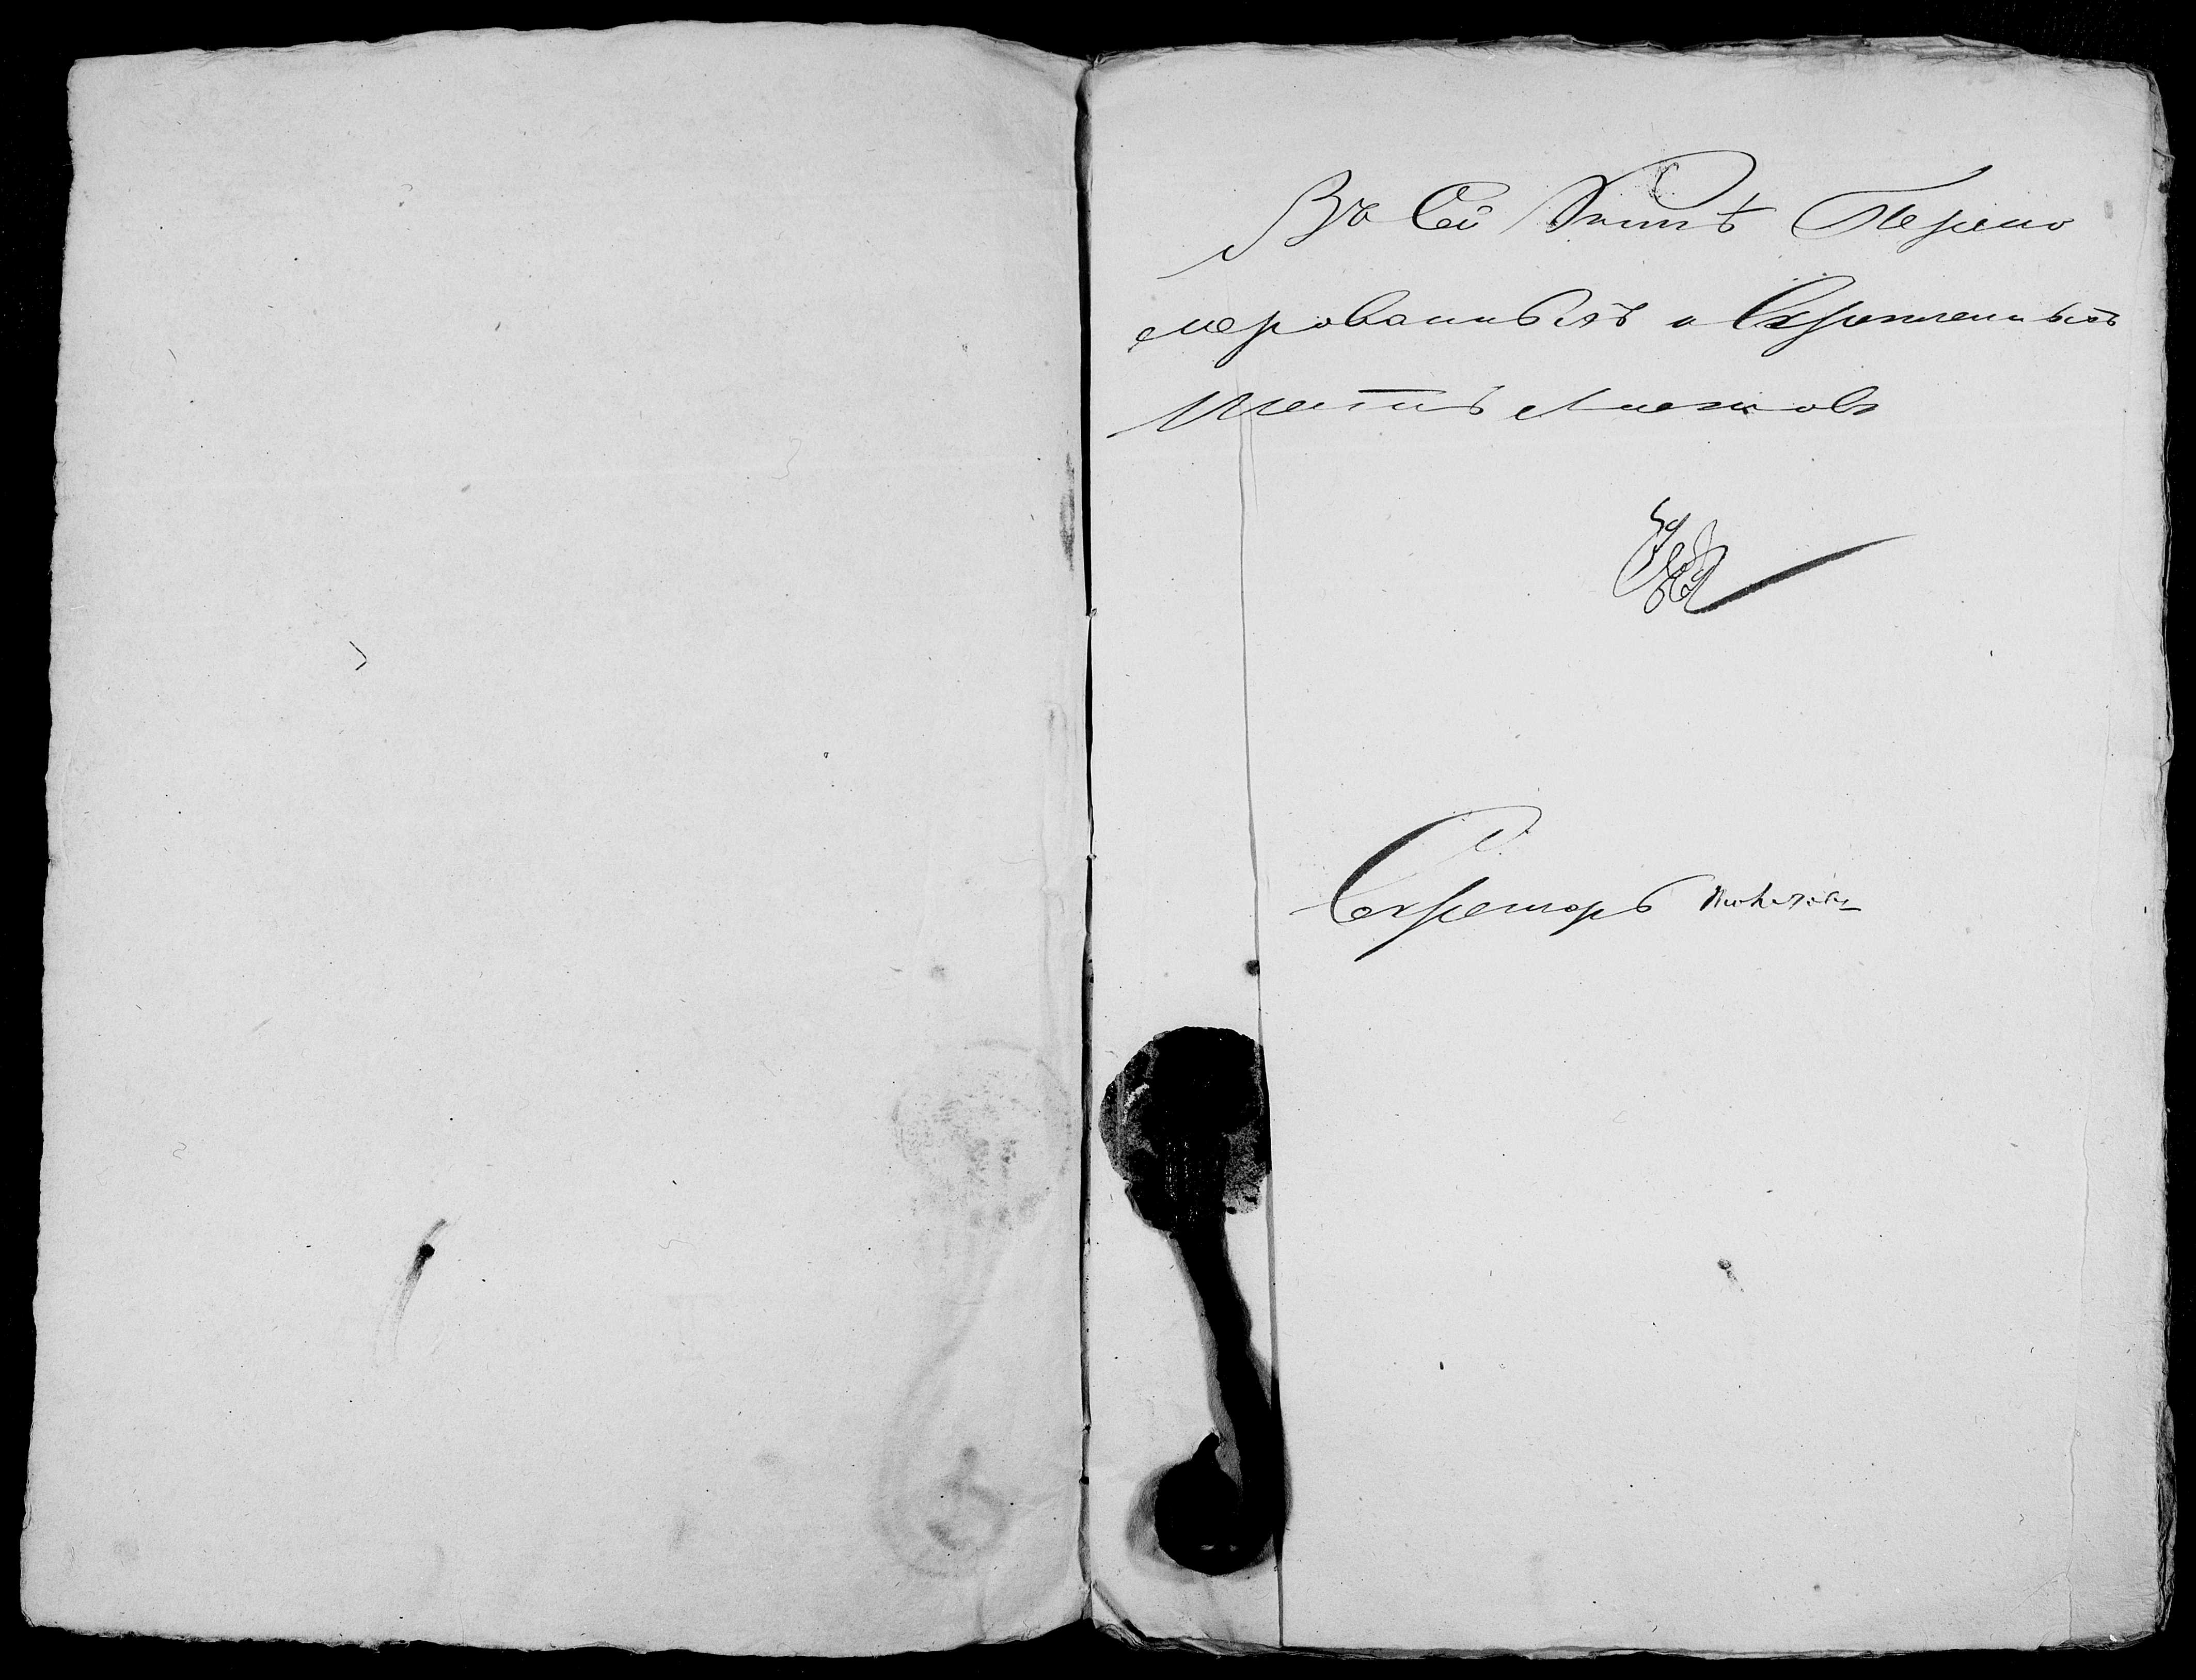 Въ Сей Книгѣ Перено
мерованныхъ и Скрепленныхъ
Шесть Листовъ
Секретарь